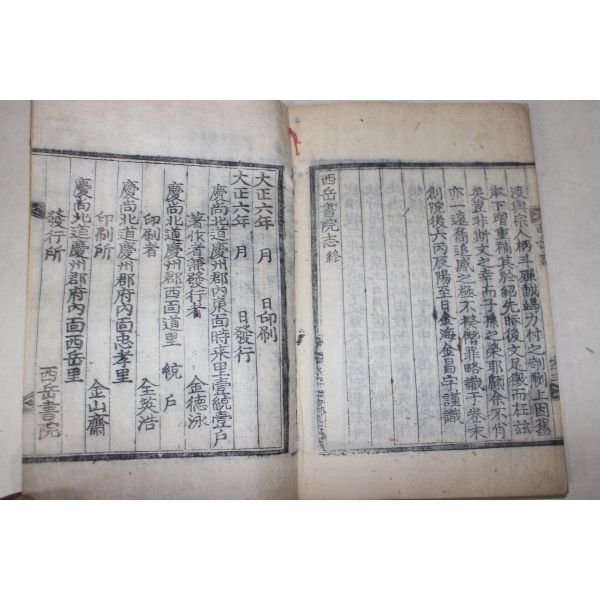 逡與宗人柄斗殫誠竭力付之剞劂上因舊
本下增重補其於紹先昕後文足徵而在玆
矣豈非斯文之幸而子孫之榮耶顧余不肖
亦一遠裔追感之極不揆僭罪略識于卷末
創院後六丙辰陽至日金海金昌宇謹識
西岳書院志終
大正六年 月 日印刷
大正六年 月 日發行
慶尙北道慶州郡內東面時來里壹統壹戶
著作者兼發行者 金德泳
慶尙北道慶州郡西面道里 統 戶
印刷者 全英浩
慶尙北道慶州郡府內面忠孝里
印刷所 金山齋
慶尙北道慶州郡府內面西岳里
發行所 西岳書院